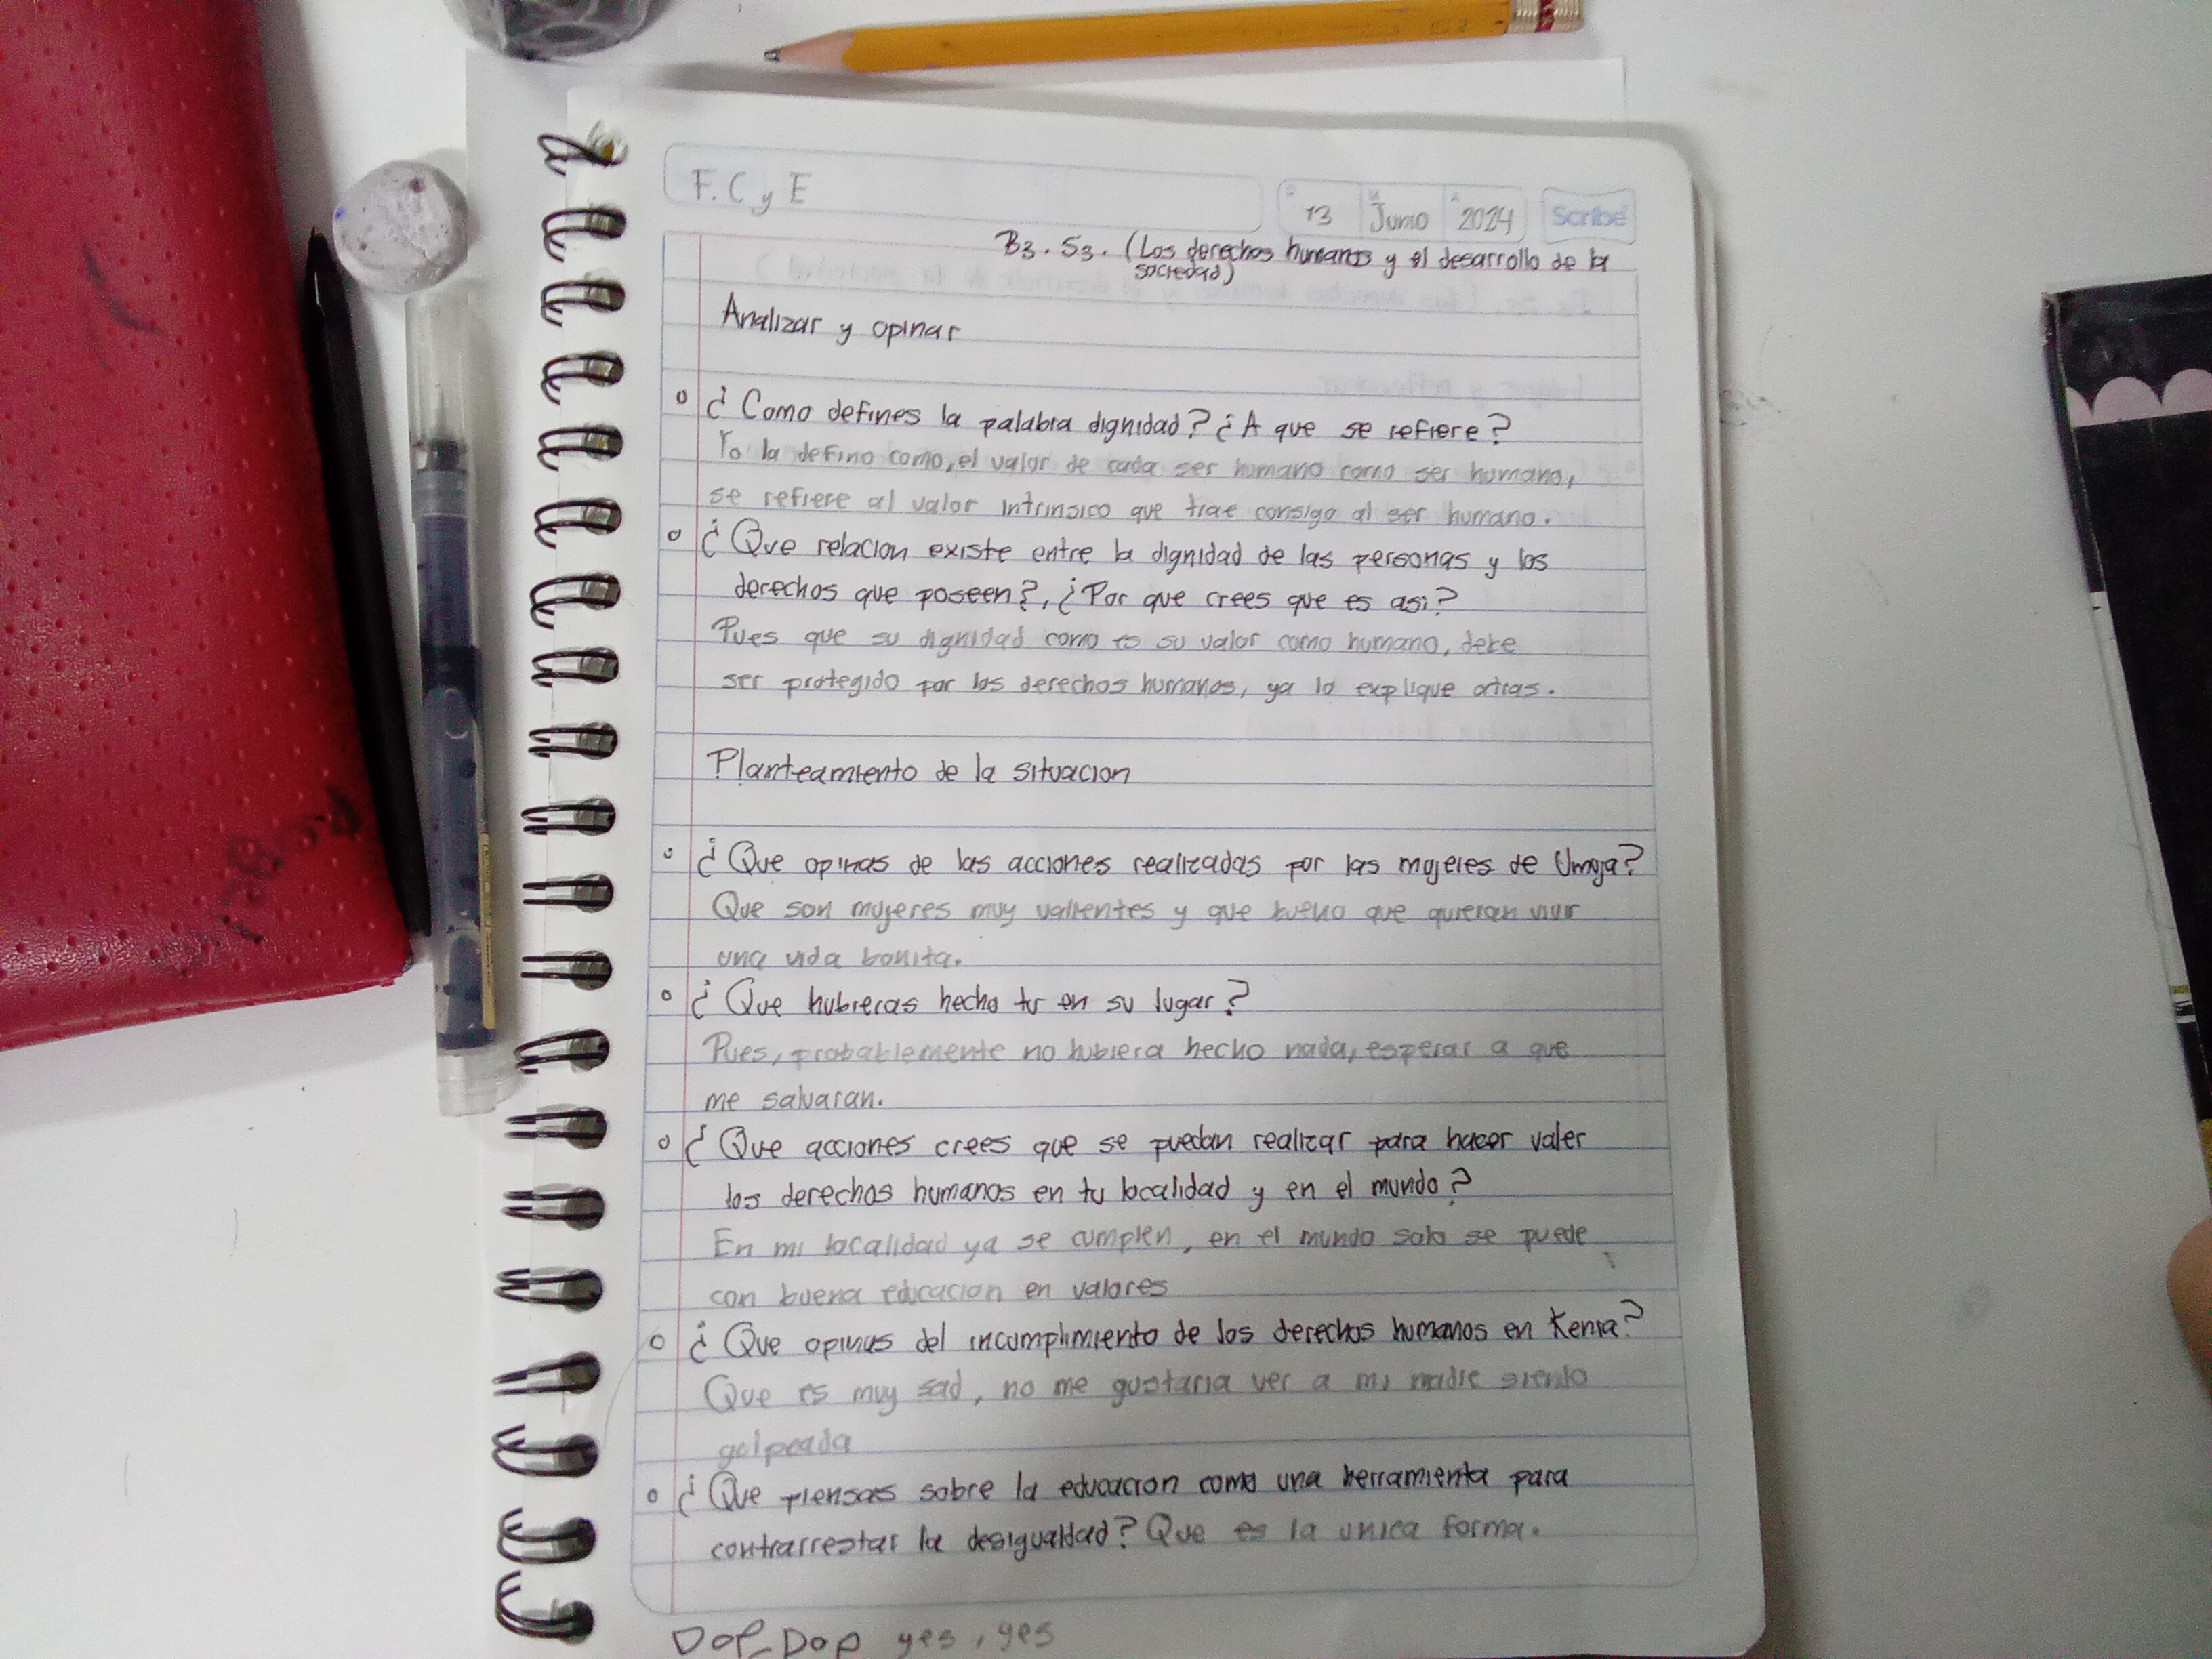 F. C y E
13 Junio 2024 Scribe
B3. S3. (Los derechos humanos y el desarrollo de la
sociedad)
Analizar y opinar
¿Como defines la palabra dignidad? ¿A que se refiere?
Yo la defino como, el valor de cada ser humano como ser humano,
se refiere al valor intrinsico que trae consigo al ser humano.
¿Que relacion existe entre la dignidad de las personas y los
derechos que poseen?, ¿Por que crees que es asi?
Pues que su dignidad como es su valor como humano, debe
ser protegido por los derechos humanos, ya lo explique atras.
Planteamiento de la situacion
¿Que opinas de las acciones realizadas por las mujeres de Umoja?
Que son mujeres muy valientes y que bueno que quieran vivir
una vida bonita.
¿Que hubieras hecho tu en su lugar?
Pues, probablemente no hubiera hecho nada, esperar a que
me salvaran.
¿Que acciones crees que se puedan realizar para hacer valer
los derechos humanos en tu localidad y en el mundo?
En mi localidad ya se cumplen, en el mundo solo se puede
con buena educacion en valores
¿Que opinas del incumplimiento de los derechos humanos en Kenia?
Que es muy sad, no me gustaria ver a mi madre siendo
golpeada
¿Que piensas sobre la educacion como una herramienta para
contrarrestar la desigualdad? Que es la unica forma.
Dop Dop yes, yes